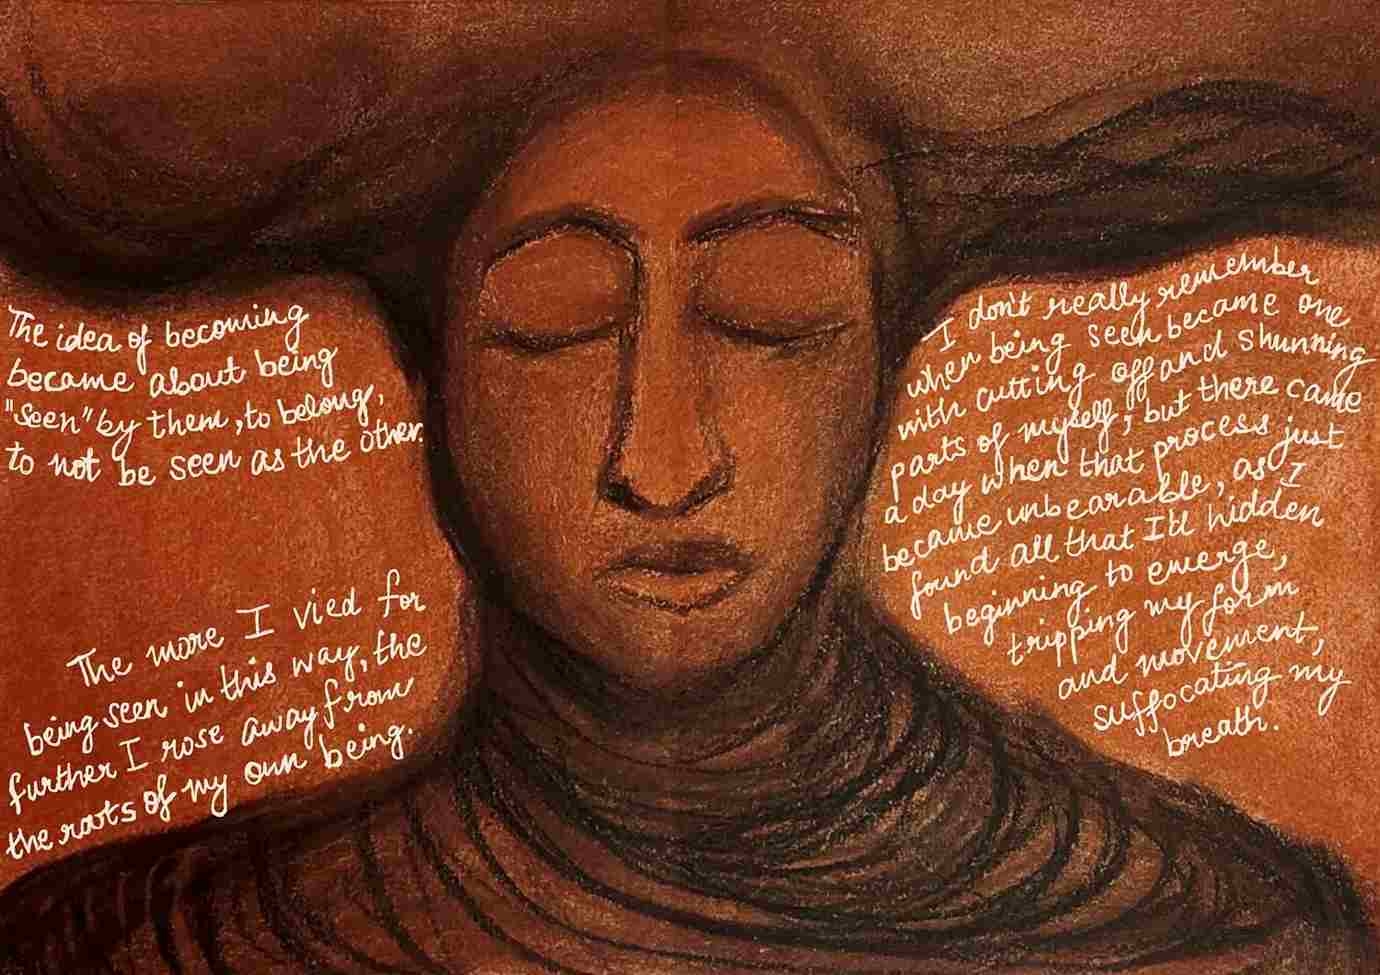 The idea of becoming
became about being
"seen" by them, to belong,
to not be seen as the other.
The more I vied for
being seen in this way, the
further I rose away from
the roots of my own being.
I don't really remember
when being seen became one
with cutting off and shunning
parts of myself; but there came
a day when that process just
became unbearable, as I
found all that I'd hidden
beginning to emerge,
tripping my form
and movement,
suffocating my
breath.